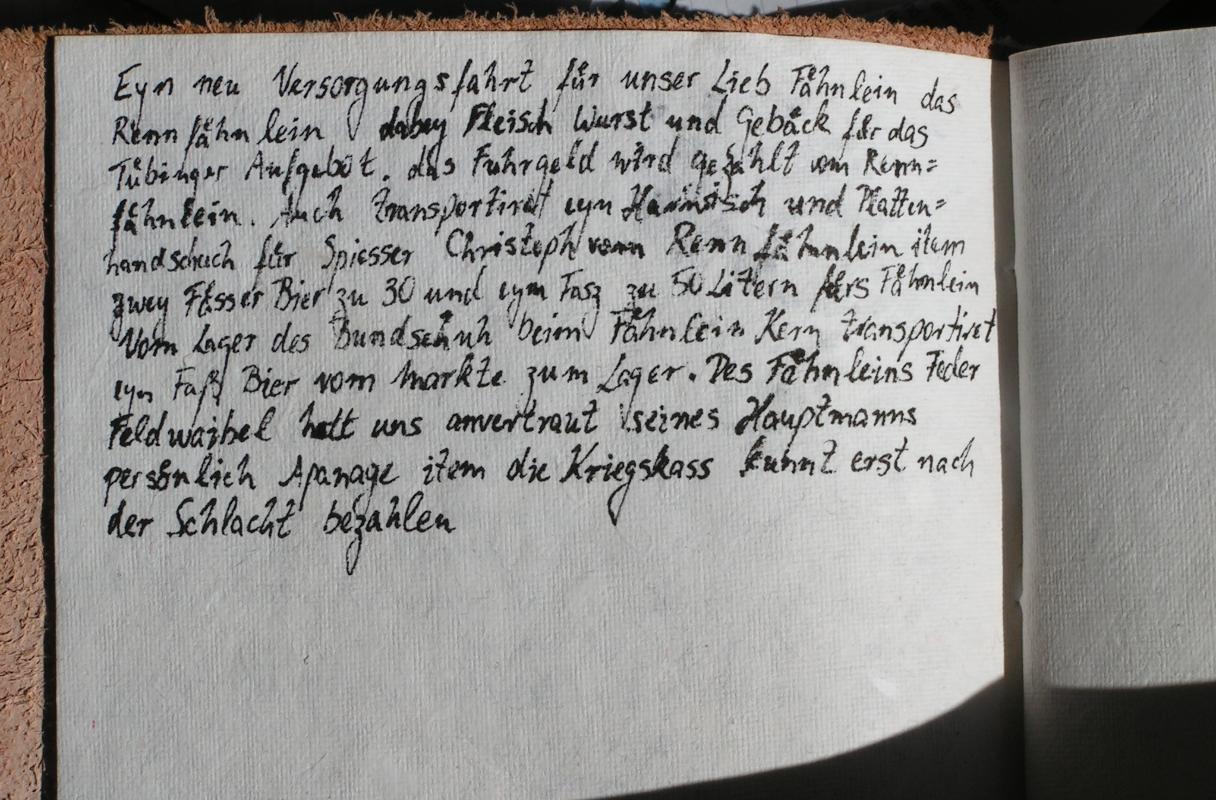 Eyn neu Versorgungsfahrt für unser Lieb Fähnlein das
Rennfähnlein dabey Fleisch Wurst und Gebäck für das
Tübinger Aufgebot. das Fuhrgeld wird gezahlt vom Renn=
fähnlein. Auch transportiret eyn Harnisch und Platten=
handschuch für Spiesser Christoph vom Rennfähnlein item
zwey Fässer Bier zu 30 und eym Fasz zu 50 Litern fürs Fähnlein
Vom Lager des Bundschuh beim Fähnlein Kern transportiret
eyn Faß Bier vom Markte zum Lager. Des Fähnleins Feder
Feldwaibel hatt uns anvertraut seines Hauptmanns
persönlich Apanage item die Kriegskass kunnt erst nach
der Schlacht bezahlen